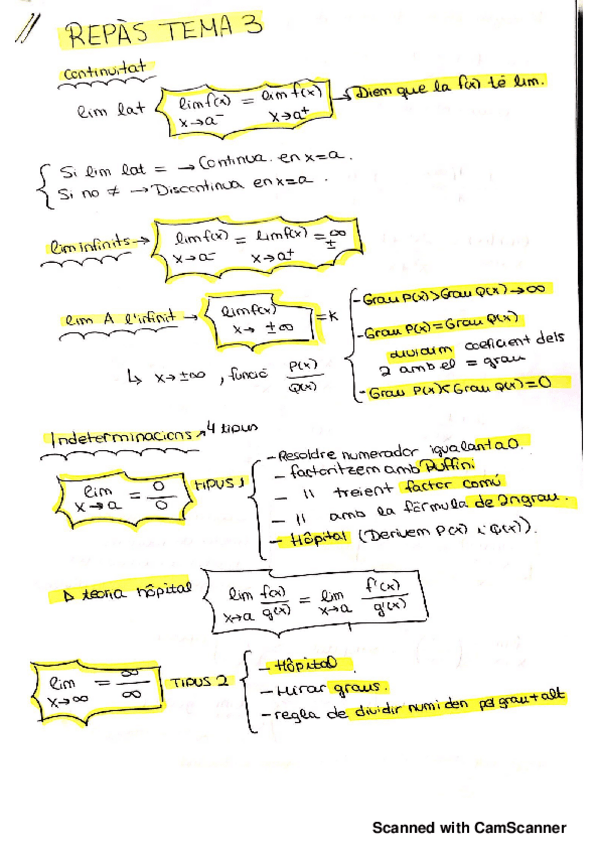 REPÀS TEMA 3
Continuïtat
lim lat lim f(x) = lim f(x) → Diem que la f(x) té lim.
x→a⁻ x→a⁺
Si lim lat = → Continua en x=a.
Si no ≠ → Discontinua en x=a.
lim infinits → lim f(x) = lim f(x) = ±∞
x→a⁻ x→a⁺
lim A l'infinit → lim f(x) = K
x→ ±∞
- Grau P(x) > Grau Q(x) → ∞
- Grau P(x) = Grau Q(x)
dividim coeficient dels
2 amb el = grau
- Grau P(x) < Grau Q(x) = 0
↳ x→±∞, funció P(x)/Q(x)
Indeterminacions → 4 tipus
lim x→a = 0/0 TIPUS 1
- Resoldre numerador igualant a 0.
- factoritzem amb Ruffini
- || treient factor comú
- || amb la fórmula de 2n grau.
- Hôpital (Derivem P(x) i Q(x)).
▷ teoria hôpital lim x→a f(x)/g(x) = lim x→a f'(x)/g'(x)
lim x→∞ = ∞/∞ TIPUS 2
- Hôpital.
- Mirar graus.
- regla de dividir num i den pel grau + alt
Scanned with CamScanner